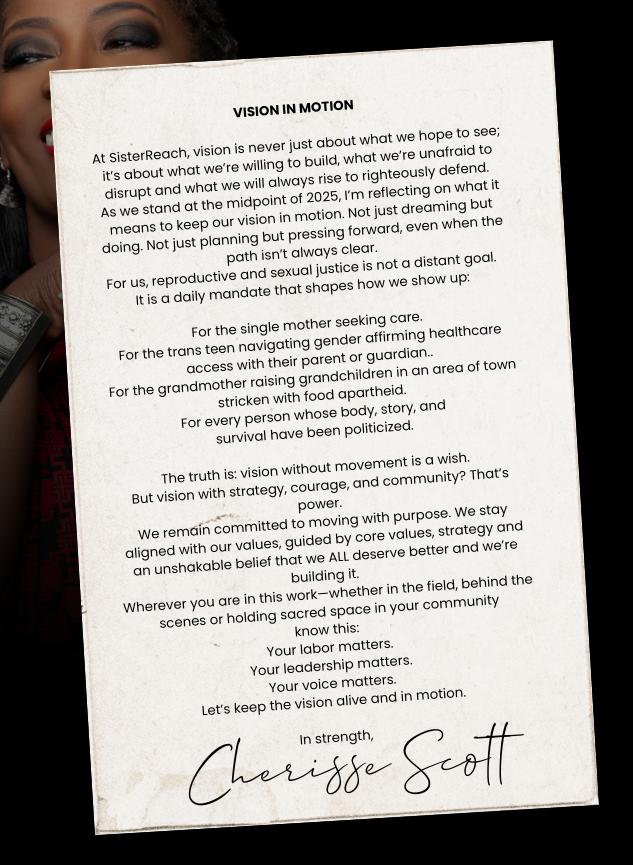 VISION IN MOTION
At SisterReach, vision is never just about what we hope to see;
it's about what we're willing to build, what we're unafraid to
disrupt and what we will always rise to righteously defend.
As we stand at the midpoint of 2025, I'm reflecting on what it
means to keep our vision in motion. Not just dreaming but
doing. Not just planning but pressing forward, even when the
path isn't always clear.
For us, reproductive and sexual justice is not a distant goal.
It is a daily mandate that shapes how we show up:
For the single mother seeking care.
For the trans teen navigating gender affirming healthcare
access with their parent or guardian..
For the grandmother raising grandchildren in an area of town
stricken with food apartheid.
For every person whose body, story, and
survival have been politicized.
The truth is: vision without movement is a wish.
But vision with strategy, courage, and community? That's
power.
We remain committed to moving with purpose. We stay
aligned with our values, guided by core values, strategy and
an unshakable belief that we ALL deserve better and we're
building it.
Wherever you are in this work—whether in the field, behind the
scenes or holding sacred space in your community
know this:
Your labor matters.
Your leadership matters.
Your voice matters.
Let's keep the vision alive and in motion.
In strength,
Cherisse Scott